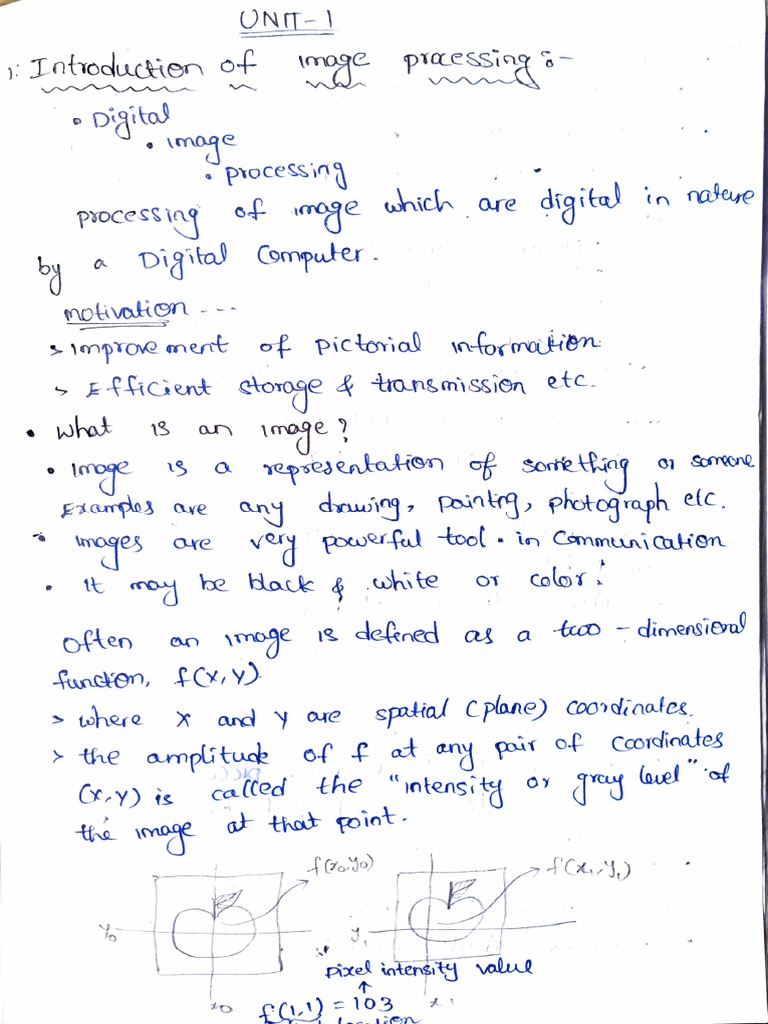 UNIT-1
1: Introduction of image processing :-
• Digital
• image
• processing
processing of image which are digital in nature
by a Digital Computer.
motivation ...
> improvement of pictorial information.
> Efficient storage & transmission etc.
• what is an image?
• Image is a representation of something or someone
Examples are any drawing, painting, photograph etc.
• images are very powerful tool . in communication
• it may be black & white or color.
Often an image is defined as a two-dimensional
function, f(x,y).
> where x and y are spatial (plane) coordinates.
> the amplitude of f at any pair of coordinates
(x,y) is called the "intensity or gray level" of
the image at that point.
f(x0,y0) f(x1,y1)
y0 y1
pixel intensity value
↑
x0 f(1,1) = 103 x1
location